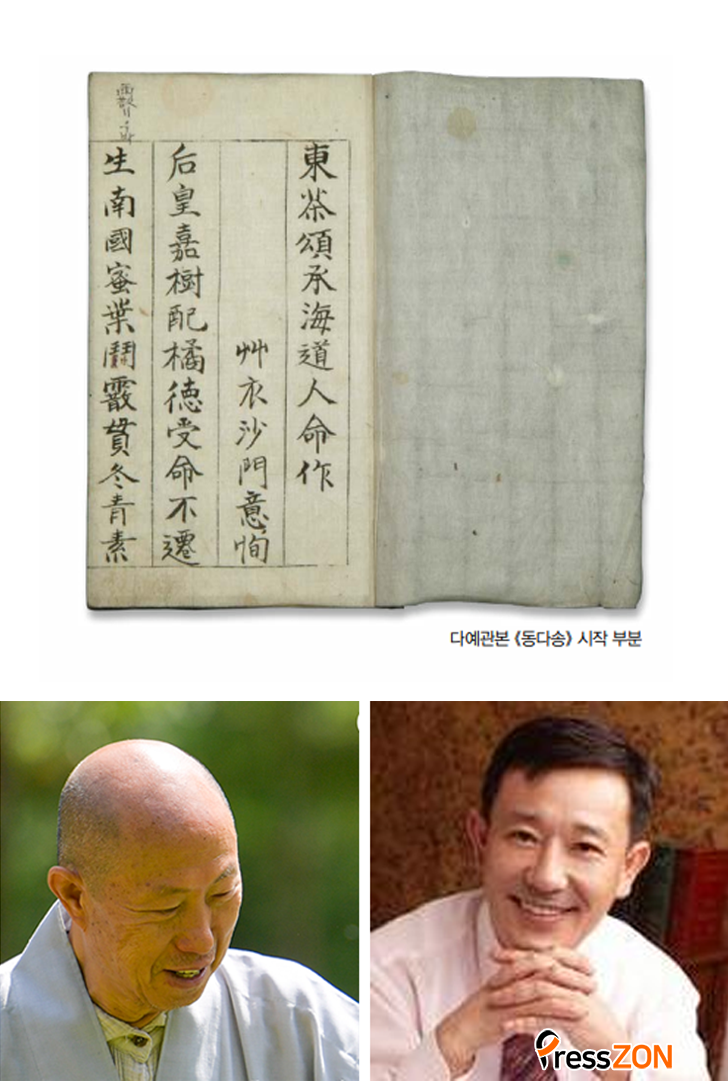 東茶頌承海道人命作
艸衣沙門意恂
后皇嘉樹配橘德受命不遷
生南國蜜葉鬪霰貫冬青素
다예관본 《동다송》 시작 부분
PressZON